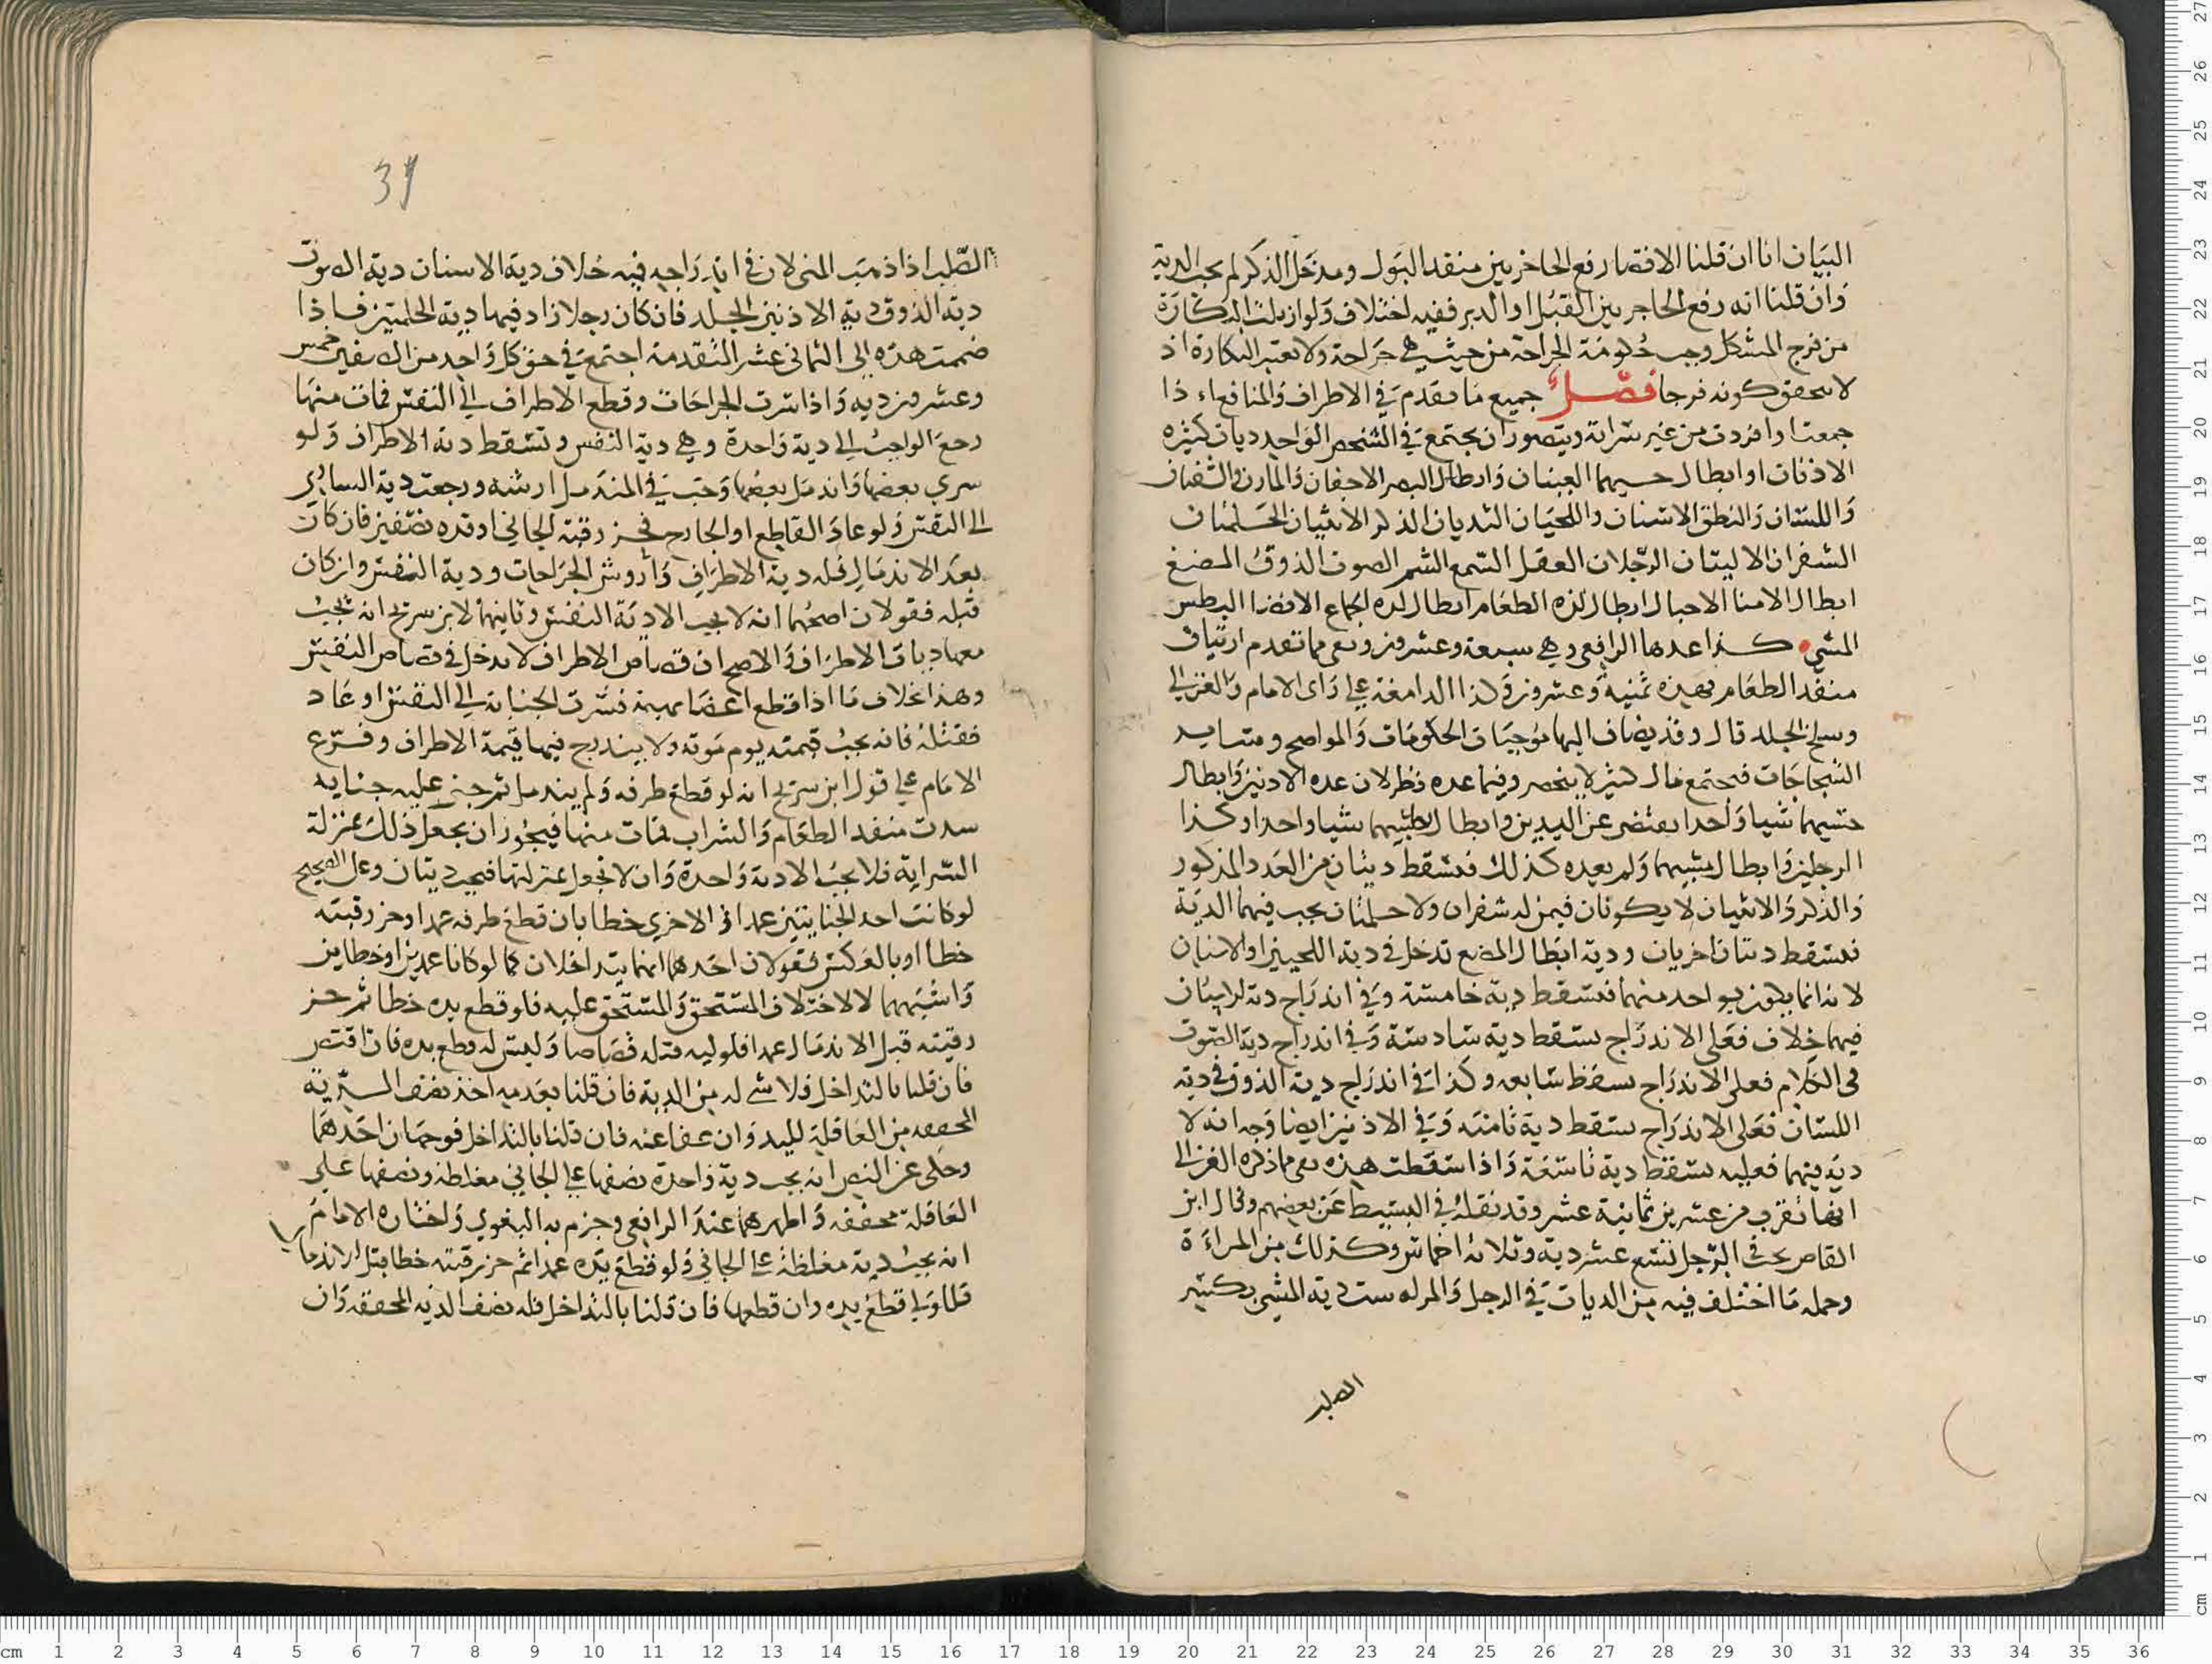 البيان انا ان قلنا الافضا رفع الحاجز بين منفد البول ومدخل الذكر لم يجب الدية
وان قلنا انه رفع الحاجز بين القبل او الدبر ففيه اختلاف ولو ازيلت البكارة
من فرج المشكل وجب حكومة الجراحة من حيث هي جراحة ولا تعتبر البكارة اذ
لا يتحقق كونه فرجا فصل جميع ما تقدم في الاطراف والمنافع اء ذا
جمعت وافردت من غير سراية ويتصور ان يجتمع في الشخص الواحد ديات كثيرة
الاذنان او ابطال حسهما العينان وابطال البصر الاجفان والمارن والشفتان
واللسان والنطق الاسنان واللحيان الثديان الذكر الانثيان الحلمتان
الشفران الاليتان الرجلان العقل السمع الشم الصوت الذوق المضغ
ابطال الامنا الاحبال ابطال لذه الطعام ابطال لذه الجماع الافضا البطش
المشي كذا عدها الرافعي وهي سبعة وعشرون وبقي مما تقدم اثنان
منفد الطعام فهذه ثمنية وعشرون وكذا الدامغة على راى الامام والغزالي
وسلخ الجلد قال وقد يضاف اليها موجبات الحكومات والمواضح وسايد
الشجاجات فيجتمع مال كثير لا ينحصر وفيما عده نظر لان عده الادنين وابطال
حسهما شيا واحدا يقتضى عن اليدين وابطال بطشهما شيا واحدا وكذا
الرجلين وابطال مشيهما ولم يعده كذلك فتسقط ديتان من العدد المذكور
والذكر والانثيان لا يكونان فيمن له شفران ولا حلمتان يجب فيهما الدية
فتسقط ديتان اخريان ودية ابطال المضغ تدخل في دية اللحيين او الاسنان
لانه انما يكون بواحد منهما فتسقط دية خامسة وفي اندراج دية لاسنان
فيهما خلاف فعلى الاندراج تسقط دية سادسة وفي اندراج دية الصوت
في الكلام فعلى الاندراج تسقط سابعه وكذا في اندراج دية الذوق في دية
اللسان فعلى الاندراج تسقط دية ثامنه وفي الاذنين ايضا وجه انه لا
دية فيهما فعليه تسقط دية تاسعة واذا اسقطت هذه بقي مما ذكره الغزالي
انها تقرب من عشرين ثمانية عشر وقد نقله في البسيط عن بعضهم وقال ابن
القاص يجب في الرجل تسع عشر دية وثلاثة اخماس وكذلك من المراءة
وجمله ما اختلف فيه من الديات في الرجل والمراه ست دية المشي بكسر
الصلب
37
الصلب اذا ذهب المني لان في اندراجه فيه خلاف دية الاسنان دية الصوت
دية الذوق دية الاذنين الجلد فان كان رجلا زاد فيها دية الحلمتين فاذا
ضمت هذه الى الثماني عشر المتقدمة اجتمع في حق كل واحد من الصنفين خمس
وعشرون ديه واذا سرت الجراحات وقطع الاطراف الي النفس فمات منها
رجع الواجب الي دية واحدة وهي دية النفس وتسقط دية الاطراف ولو
سري بعضها واندمل بعضها وجب في المندمل ارشه ورجعت دية الساري
الى النفس ولو عاد القاطع او الجارح فحز رقبة الجاني او قده نصفين فان كان
بعد الاندمال فله دية الاطراف واروش الجراحات ودية النفس وان كان
قبله فقولان اصحهما انه لا يجب الا دية النفس وثانيهما لابن سريج انه يجب
معها ديات الاطراف والاصح ان قصاص الاطراف لا يدخل في قصاص النفس
وهذا بخلاف ما اذا قطع اعضا بهيمة فسرت الجناية الي النفس او عاد
فقتله فانه يجب قيمته يوم موته ولا يندرج فيها قيمة الاطراف وفرع
الامام على قول ابن سريج انه لو قطع طرفه ولم يندمل ثم جنى عليه جناية
سدت منفد الطعام والشراب فمات منها فيجوز ان يجعل ذلك بمنزلة
السراية فلا يجب الا دية واحدة وان لا تجعل بمنزلتها فيجب ديتان وعلى الصحيح
لو كانت احد الجنايتين عمدا و الاخري خطا بان قطع طرفه عمدا وحز رقبته
خطا او بالعكس فقولان احدهما انهما يتداخلان كما لو كانا عمدين او خطاين
واشبههما لا لاختلاف المستحق والمستحق عليه فلو قطع يده خطا ثم حز
رقبته قبل الاندمال عمدا فلوليه قتله قصاصا وليس له قطع يده فان اقتصر
فان قلنا بالتداخل فلا شي له من الدية فان قلنا بعدمه اخذ نصف الدية
المخففه من العاقلة لليد وان عفا عنه فان قلنا بالتداخل فوجهان احدهما
وحكى عن النص انه يجب دية واحدة نصفها على الجاني مغلظة ونصفها على
العاقلة مخففه واظهرهما عند الرافعي وجزم به البغوي واختاره الامام
انه يجب دية مغلظة على الجاني ولو قطع يده عمدا ثم حز رقبته خطا قبل الاندمال
فللولي قطع يده وان قطعها فان قلنا بالتداخل فله نصف الدية المخففه وان